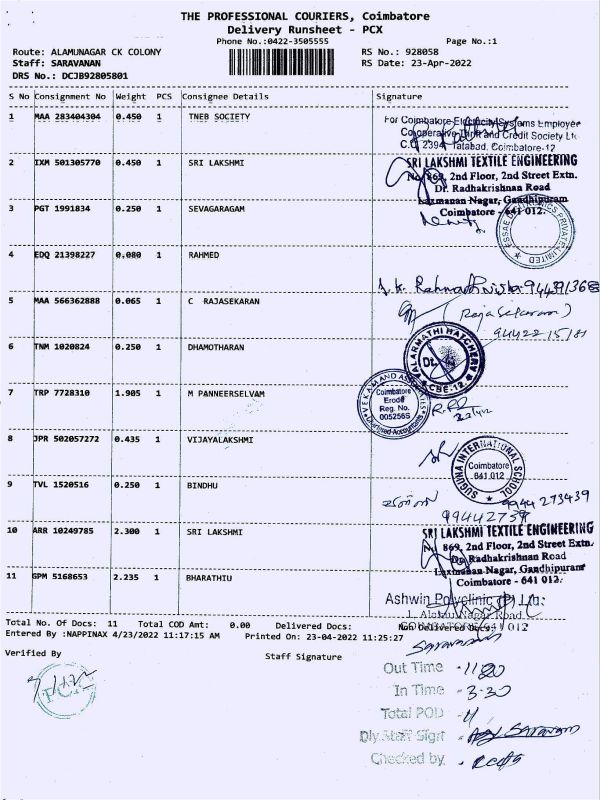 THE PROFESSIONAL COURIERS, Coimbatore
Delivery Runsheet - PCX
Phone No.:0422-3505555
Page No.:1
Route: ALAMUNAGAR CK COLONY
RS No.: 928058
Staff: SARAVANAN
RS Date: 23-Apr-2022
DRS No.: DCJB92805801
S No Consignment No Weight PCS Consignee Details Signature
1 MAA 283404304 0.450 1 TNEB SOCIETY
For Coimbatore Electricity Systems Employee
Cooperative Thrift and Credit Society Lt
C.C. 2394, Tatabad, Coimbatore-12
2 IXM 501305770 0.450 1 SRI LAKSHMI
SRI LAKSHMI TEXTILE ENGINEERING
No. 869, 2nd Floor, 2nd Street Extn.
Dr. Radhakrishnan Road
Laxmanan Nagar, Gandhipuram
Coimbatore - 641 012.
3 PGT 1991834 0.250 1 SEVAGARAGAM
PRIVATE LIMITED
4 EDQ 21398227 0.080 1 RAHMED
5 MAA 566362888 0.065 1 C RAJASEKARAN
(Rajasekaran)
94422 15181
6 TNM 1020824 0.250 1 DHAMOTHARAN
ALARMATHI HATCHERY
CBE-12
7 TRP 7728310 1.905 1 M PANNEERSELVAM
Coimbatore
Erode
Reg. No.
005256S
Chartered Accountants
8 JPR 502057272 0.435 1 VIJAYALAKSHMI
SUGUNA INTERNATIONAL SCHOOL
Coimbatore
641 012
9 TVL 1520516 0.250 1 BINDHU
9944 273439
99442739
10 ARR 10249785 2.300 1 SRI LAKSHMI
SRI LAKSHMI TEXTILE ENGINEERING
869, 2nd Floor, 2nd Street Extn.
Dr. Radhakrishnan Road
Laxmanan Nagar, Gandhipuram
Coimbatore - 641 012.
11 GPM 5168653 2.235 1 BHARATHIU
Ashwin Polyclinic (P) Ltd.
Total No. Of Docs: 11 Total COD Amt: 0.00 Delivered Docs: Non Delivered Docs:
Entered By :NAPPINAX 4/23/2022 11:17:15 AM Printed On: 23-04-2022 11:25:27
Verified By
Staff Signature
Saravanan
Out Time - 11.20
In Time - 3-30
Total POD - 11
Dly.Staff Signt - Saravanan
Checked by -